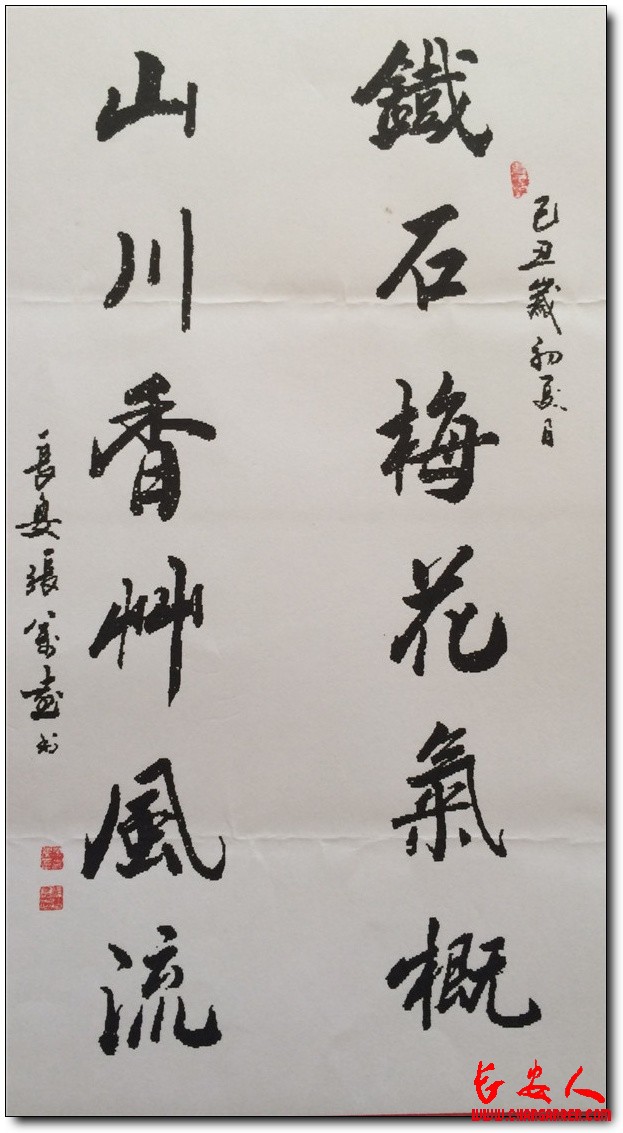 己丑歲初夏月
鐵石梅花氣概
山川香艸風流
長安張
書
长安人